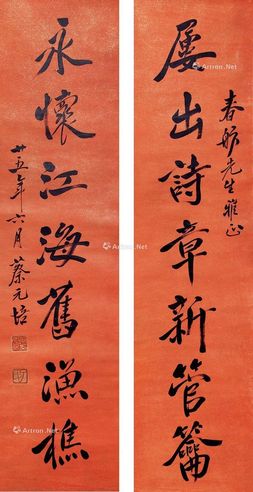 春舫先生雅正
屡出詩章新管籥
永懷江海舊漁樵
廿五年六月 蔡元培
Artron.Net